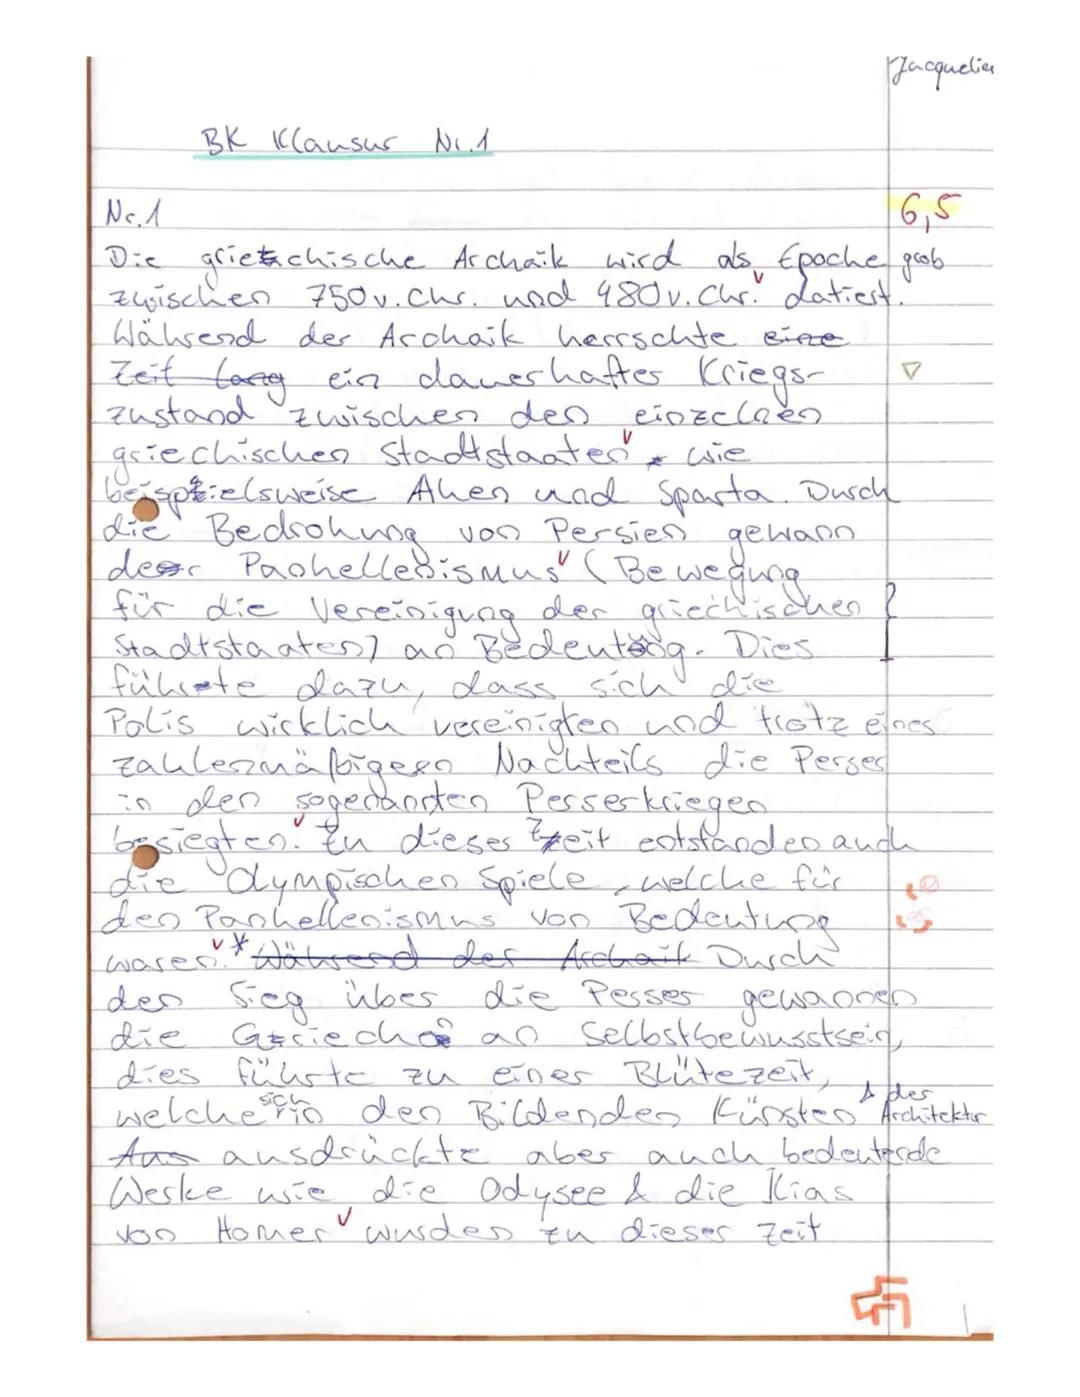 Jacquelin
BK Klausur Nr.1
Nr.1
6,5
Die griechische Archaik wird als Epoche grob
zwischen 750 v. Chr. und 480 v. Chr. datiert.
Während der Archaik herrschte eine
Zeit lang ein dauerhafter Kriegs-
zustand zwischen den einzelnen
griechischen Stadtstaaten wie
beispielsweise Ahen und Sparta. Durch
die Bedrohung von Persien gewann
der Panhellenismus (Bewegung
für die Vereinigung der griechischen
Stadtstaaten) an Bedeutung. Dies
führte dazu, dass sich die
Polis wirklich vereinigten und trotz eines
zahlenmäßigeren Nachteils die Perser
in den sogenannten Perserkriegen
besiegten. Zu dieser Zeit entstanden auch
die Olympischen Spiele, welche für
den Panhellenismus von Bedeutung
waren.* Während der Archaik Durch
den Sieg über die Perser gewannen
die Griechen an Selbstbewusstsein,
dies führte zu einer Blütezeit,
welche sich in den Bildenden Künsten & der Architektur
Aus ausdrückte aber auch bedeutende
Werke wie die Odysee & die Ilias
von Homer wurden zu dieser Zeit